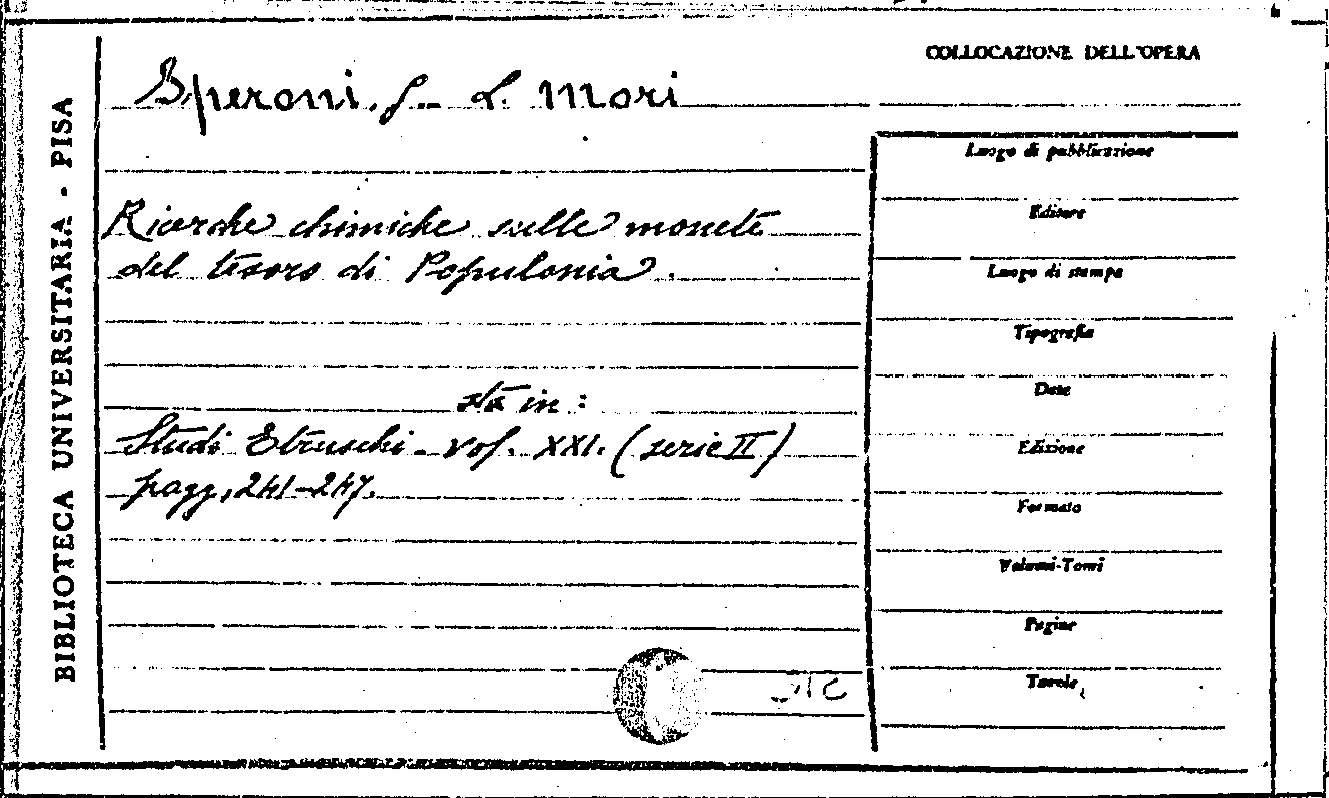 COLLOCAZIONE DELL'OPERA
Speroni, G. - L. Mori
Ricerche chimiche sulle monete
del tesoro di Populonia.
sta in:
Studi Etruschi - vol. XXI. (serie II)
pagg. 241-247.
BIBLIOTECA UNIVERSITARIA - PISA
Luogo di pubblicazione
Editore
Luogo di stampa
Tipografia
Date
Edizione
Formato
Volumi-Tomi
Pagine
Tavole